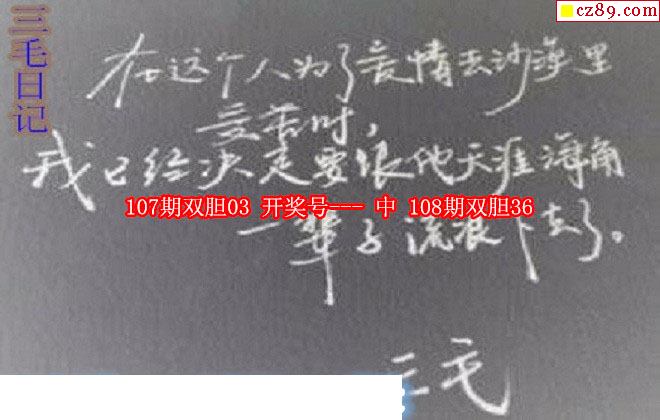 cz89.com
三毛日记
在这个人为了爱情去沙漠里
受苦时，
我已经决定要跟他天涯海角
107期双胆03 开奖号--- 中 108期双胆36
一辈子流浪下去了。
三毛